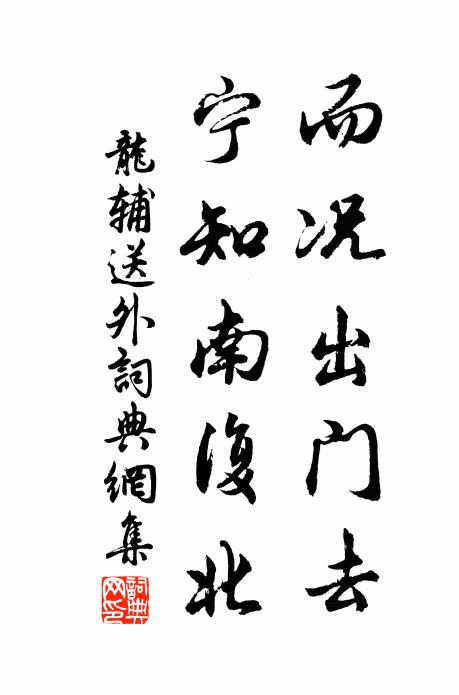 而况出门去
宁知南復北
龍輔送外詞典網集
詞典网印